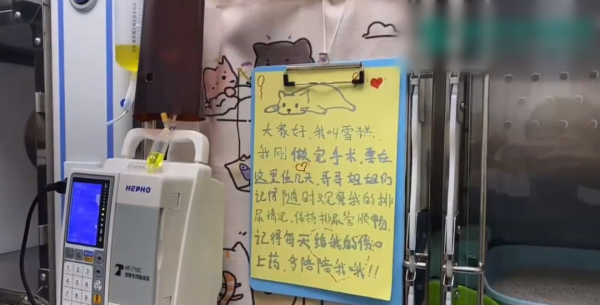 大家好,我叫雪糕,
我刚做完手术,要在
这里住几天,哥哥姐姐们
记得随时观察我的排
尿情况,保持排尿管顺畅,
记得每天给我的伤口
上药,多陪陪我哦!!
HEPHO